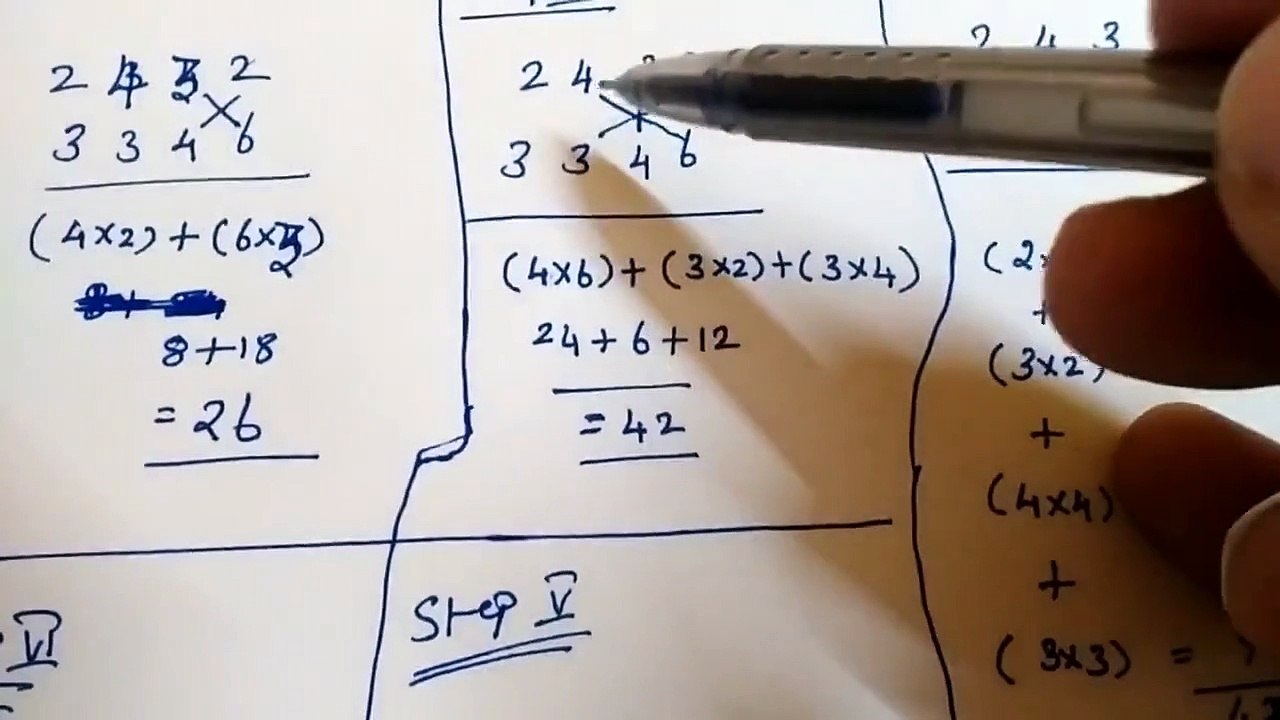 2 4 3 2
3 3 4 6
(4x2) + (6x3)
8+18
= 26
2 4
3 3 4 6
(4x6) + (3x2) + (3x4)
24 + 6 + 12
= 42
2 4 3
(2x
+
(3x2)
+
(4x4)
+
(3x3) =
VI
Step V